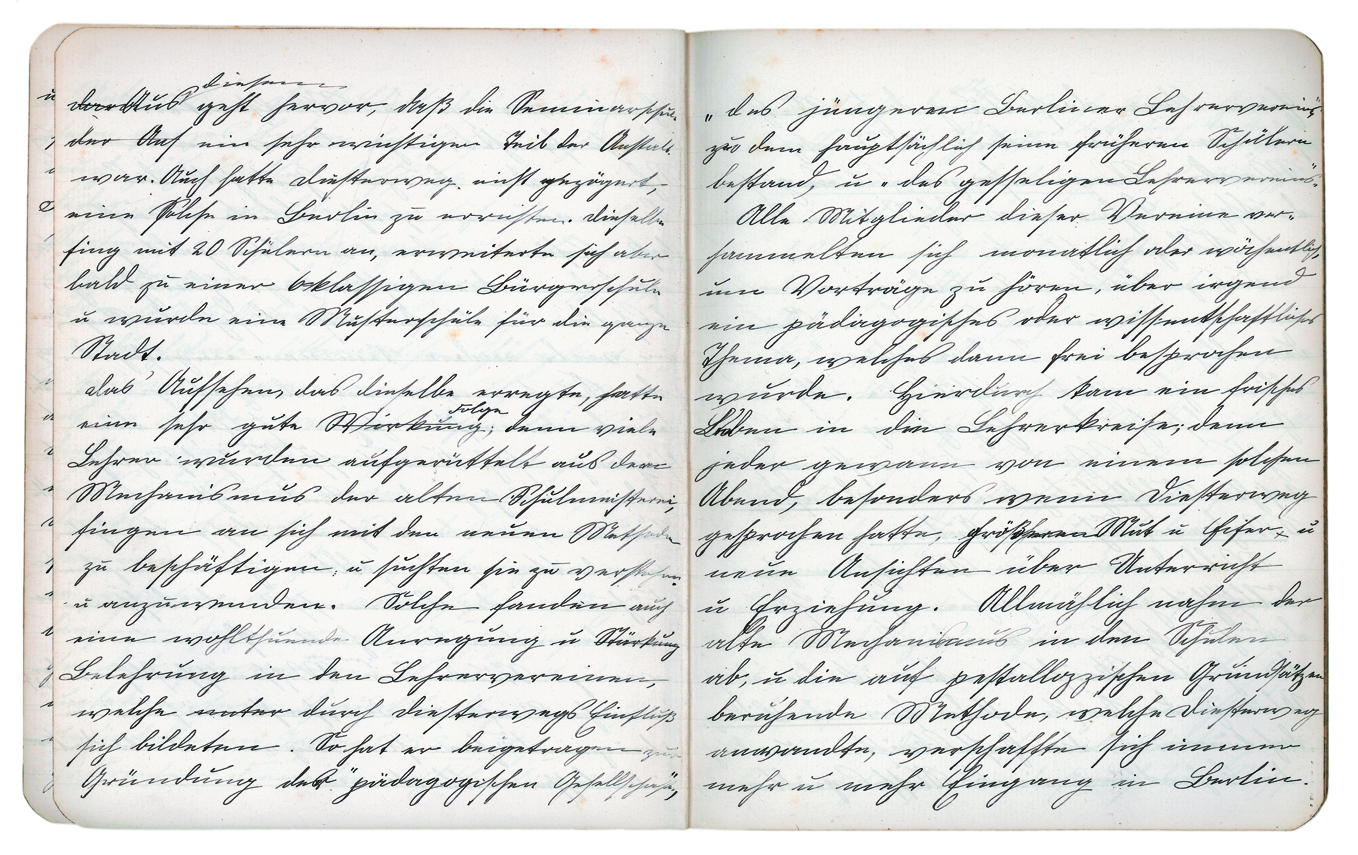 diesem
darAus geht hervor, daß die Seminarschule
der Auf ein sehr wichtiger Teil der Anstalt
war. Auch hatte Diesterweg nicht gezögert,
eine solche in Berlin zu errichten. Dieselbe
fing mit 20 Schülern an, erweiterte sich aber
bald zu einer 6klassigen Bürgerschule
u wurde eine Musterschule für die ganze
Stadt.
Das Aufsehen, das dieselbe erregte, hatte
Folge
eine sehr gute Wirkung; denn viele
Lehrer wurden aufgerüttelt aus dem
Mechanismus der alten Schulmeisterei,
fingen an sich mit den neuen Methoden
zu beschäftigen, u suchten sie zu verstehen
u anzuwenden. Solche fanden auch
eine wohlthuende Anregung u Stärkung
Belehrung in den Lehrervereinen,
welche unter durch Diesterwegs Einfluß
sich bildeten. So hat er beigetragen zur
Gründung der "pädagogischen Gesellschaft",
"des jüngeren Berliner Lehrervereins",
der hauptsächlich seine früheren Schülern
bestand, u "des geselligen Lehrervereins".
Alle Mitglieder dieser Vereine ver-
sammelten sich monatlich oder wöchentlich,
um Vorträge zu hören, über irgend
ein pädagogisches oder wissenschaftliches
Thema, welches dann frei besprochen
wurde. Hierdurch kam ein frisches
Leben in die Lehrerkreise; denn
jeder gewann von einem solchen
Abend, besonders wenn Diesterweg
gesprochen hatte, größeren Mut u Eifer u
neue Ansichten über Unterricht
u Erziehung. Allmählich nahm der
alte Mechanismus in den Schulen
ab, u die auf pestallozzischen Grundsätzen
beruhende Methode, welche Diesterweg
anwandte, verschaffte sich immer
mehr u mehr Eingang in Berlin.